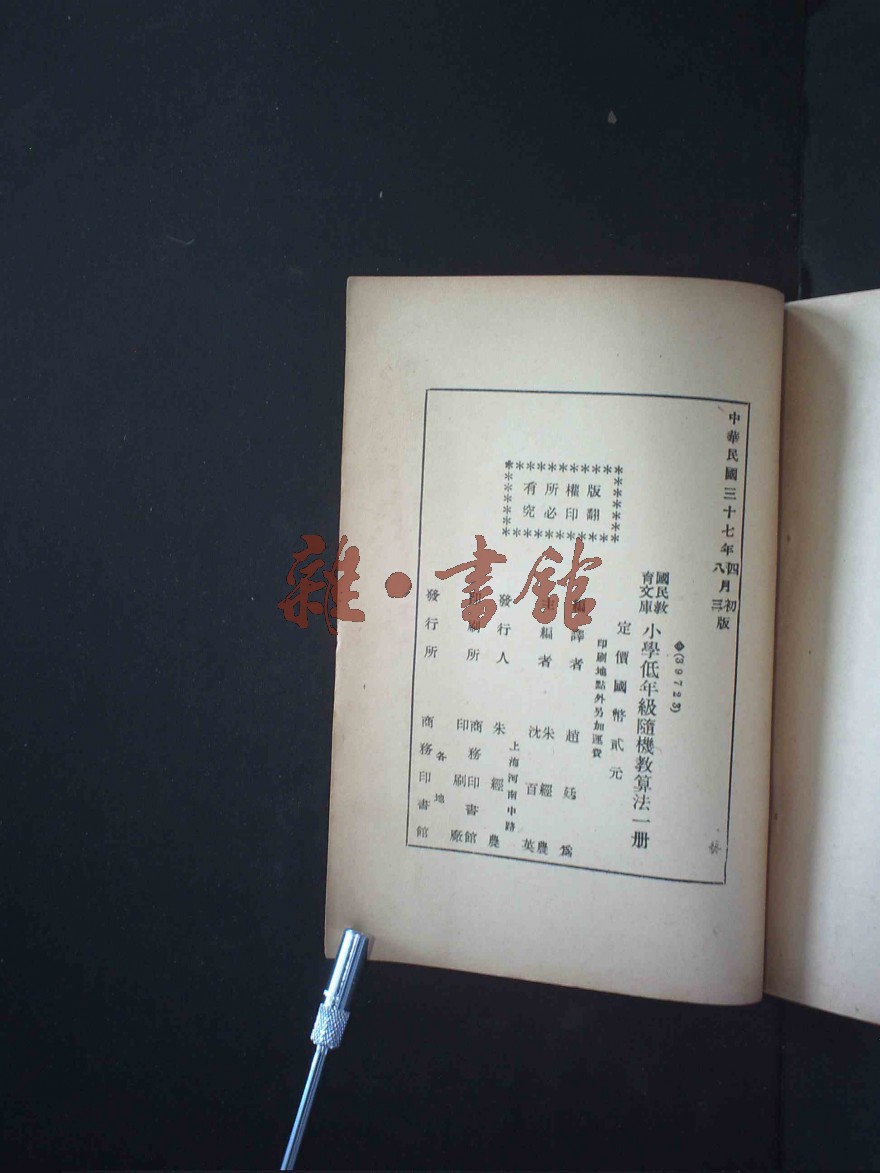 中華民國三十七年四月初版
八月三版
❖(39725)
國民教育文庫 小學低年級隨機教算法一册
定價國幣貳元
印刷地點外另加運費
版權所有
翻印必究
編譯者 趙廷爲
主編者 朱經農 沈百英
發行人 朱經農
上海河南中路
印刷所 商務印書館印刷廠
發行所 各地商務印書館
雜·書館